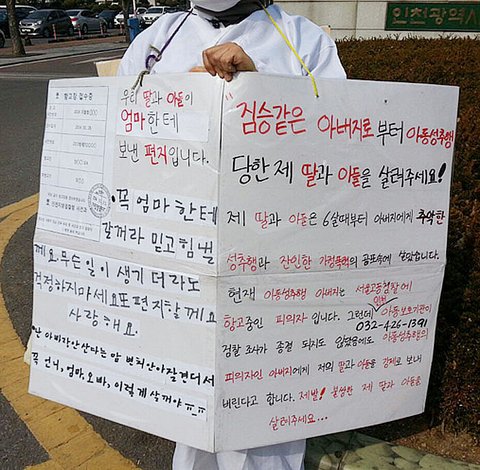 인천광역시
우리 딸과 아들이
엄마한테
보낸 편지입니다.
꼭 엄마한테
갈꺼라 믿고 힘낼
께요. 무슨 일이 생기더라도
걱정하지마세요 또 편지할께요
사랑해요.
난 아빠랑 안산다는 맘 변치안아 잘견디서
꼭 언니, 엄마, 오빠, 이렇게 살꺼야 ㅠㅠ
"짐승같은 아버지로부터 아동성추행
당한 제 딸과 아들을 살려주세요!
제 딸과 아들은 6살때부터 아버지에게 추악한
성추행과 잔인한 가정폭력의 공포속에 살았습니다.
현재 아동성추행 아버지는 서울고등검찰에
항고중인 피의자입니다. 그런데 인천 아동보호기관이
032-426-1391
검찰 조사가 종결 되지도 않았음에도 아동성추행의
피의자인 아버지에게 저의 딸과 아들을 강제로 보내
버린다고 합니다. 제발! 불쌍한 제 딸과 아들을
살려주세요...